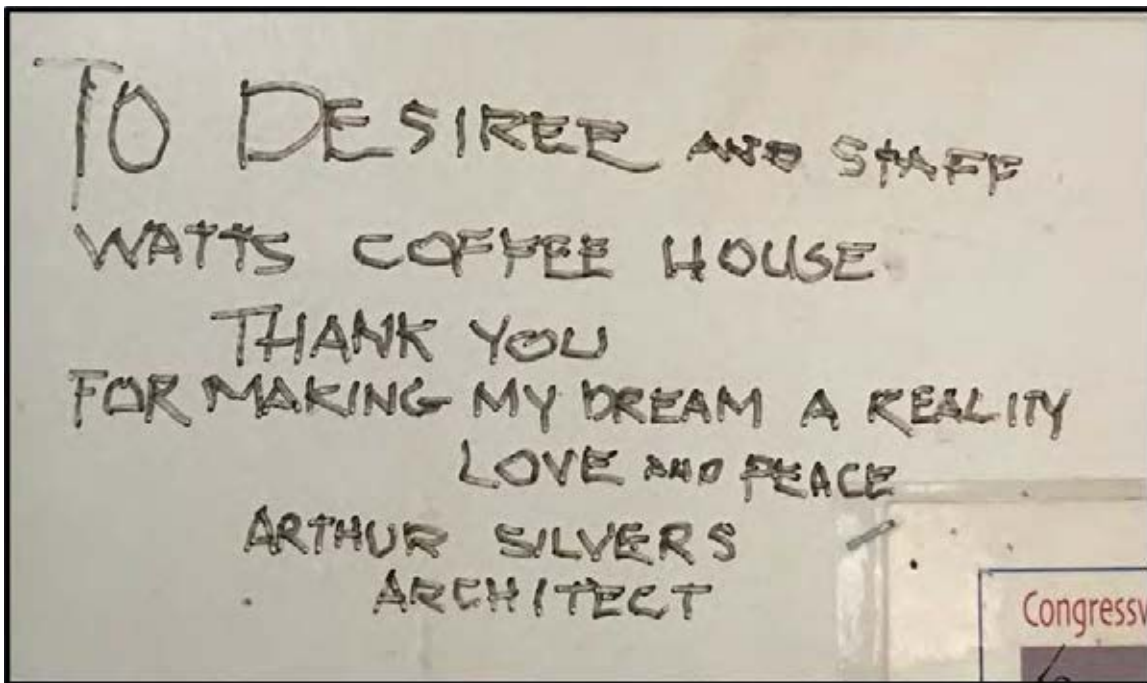 TO DESIREE AND STAFF
WATTS COFFEE HOUSE
THANK YOU
FOR MAKING MY DREAM A REALITY
LOVE AND PEACE
ARTHUR SILVERS
ARCHITECT